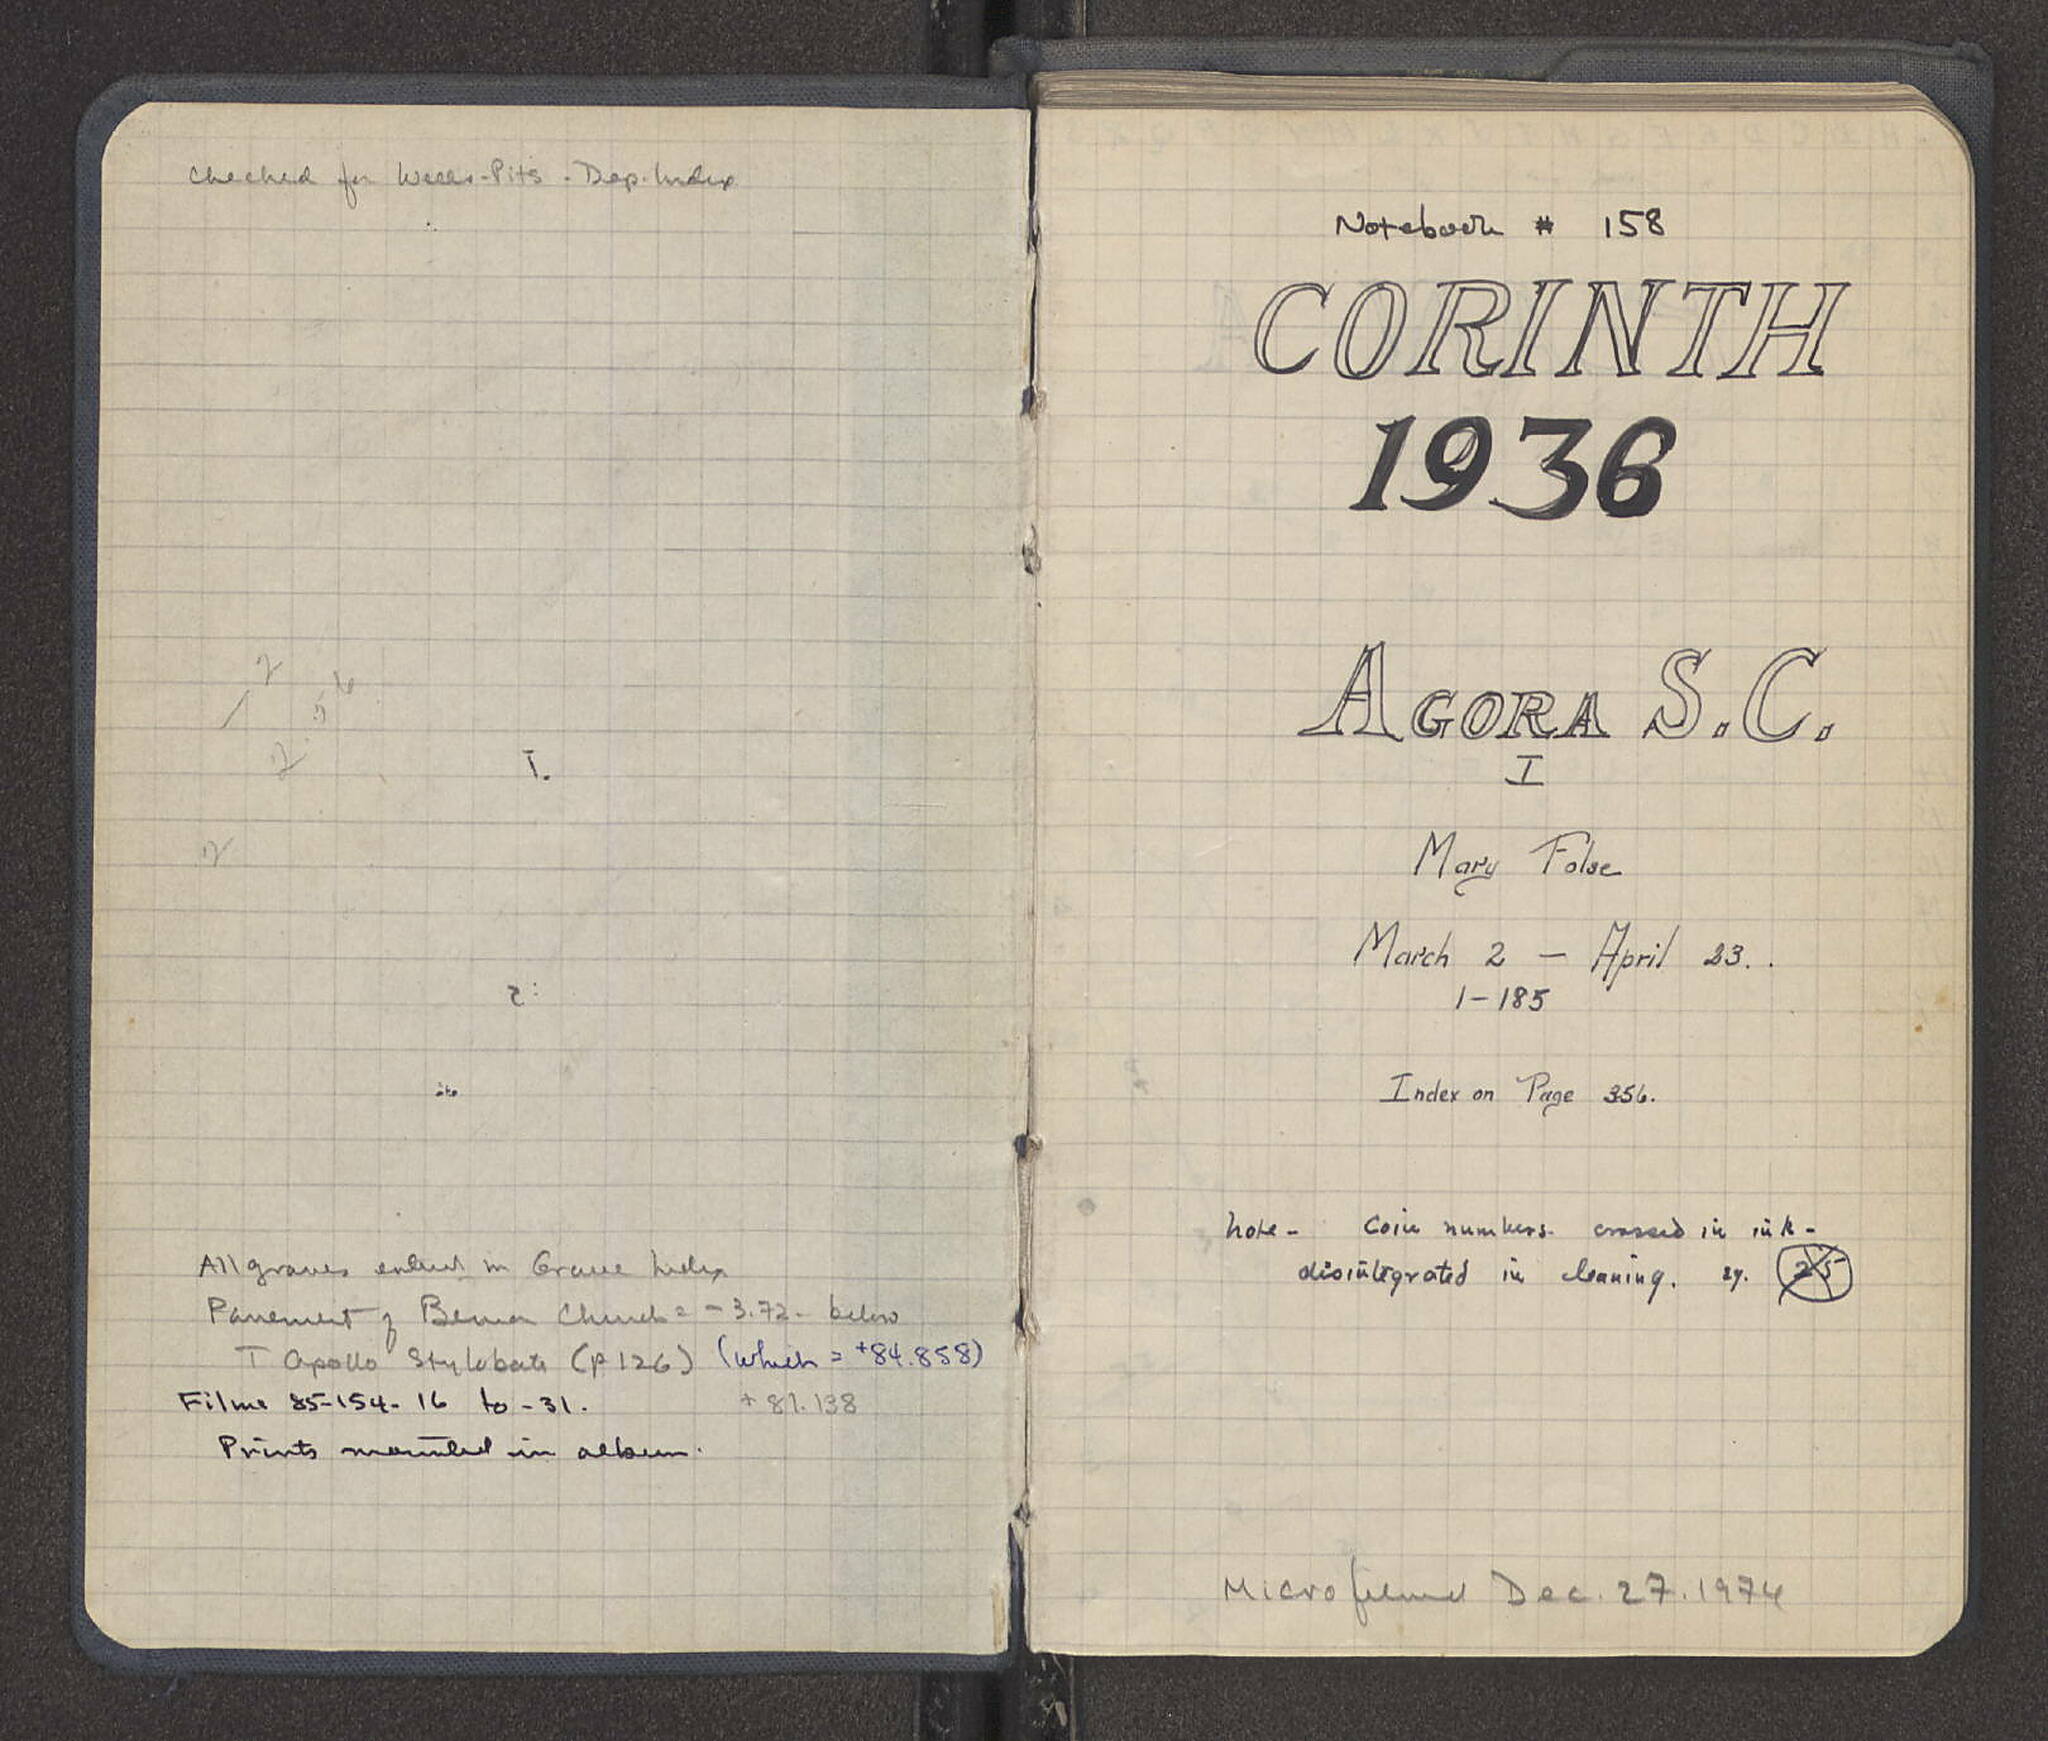 Checked for Wells-Pits. Dep. Index
2
2.56
I.
2
2:
All graves entered in Grave Index
Pavement of Bema Church = -3.72 below
T Apollo Stylobate (p 126) (which = +84.858)
Films 85-154-16 to -31. +81.138
Prints mounted in album.
Notebook # 158
CORINTH
1936
AGORA S.C.
I
Mary Folse
March 2 — April 23..
1-185
Index on Page 356.
Note- Coin numbers crossed in ink-
disintegrated in cleaning. eg. 25
Microfilmed Dec. 27. 1974